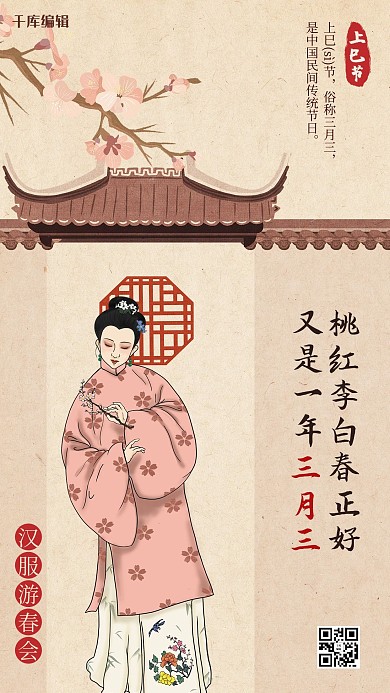 千库编辑
上巳节
上巳(sì)节，俗称三月三，
是中国民间传统节日。
桃红李白春正好
又是一年三月三
汉服游春会